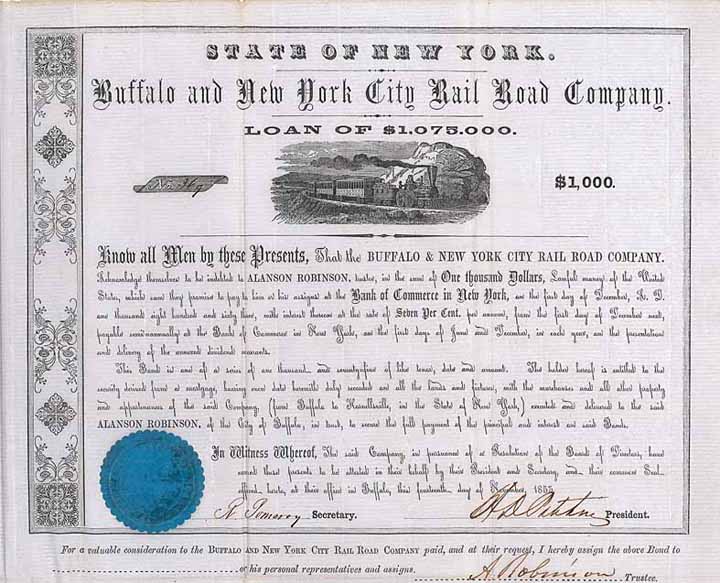 STATE OF NEW YORK.
Buffalo and New York City Rail Road Company.
LOAN OF $1,075,000.
No.
$1,000.
Know all Men by these Presents, That the BUFFALO & NEW YORK CITY RAIL ROAD COMPANY.
Acknowledge themselves to be indebted to ALANSON ROBINSON, trustee, in the sum of One thousand Dollars, Lawful money of the United
States, which sum they promise to pay to him or his assigns at the Bank of Commerce in New York, on the first day of December, A. D.
one thousand eight hundred and sixty three, with interest thereon at the rate of Seven Per Cent. per annum, from the first day of December next,
payable semi-annually at the Bank of Commerce in New York, on the first days of June and December, in each year, on the presentation
and delivery of the annexed dividend warrants.
This Bond is one of a series of one thousand and seventy-five of like tenor, date and amount. The holder hereof is entitled to the
security derived from a mortgage, bearing even date herewith duly recorded on all the lands and fixtures, with the warehouses and all other property
and appurtenances of the said Company, (from Buffalo to Hornellsville, in the State of New York,) executed and delivered to the said
ALANSON ROBINSON, of the City of Buffalo, in trust, to secure the full payment of the principal and interest on said Bonds.
In Witness Whereof, The said Company, in pursuance of a Resolution of the Board of Directors, have
caused these presents to be attested in their behalf by their President and Secretary, and their common Seal
affixed hereto, at their office in Buffalo, this fourteenth day of November,
Secretary.
President.
For a valuable consideration to the BUFFALO AND NEW YORK CITY RAIL ROAD COMPANY paid, and at their request, I hereby assign the above Bond to
or his personal representatives and assigns.
A. Robinson Trustee.